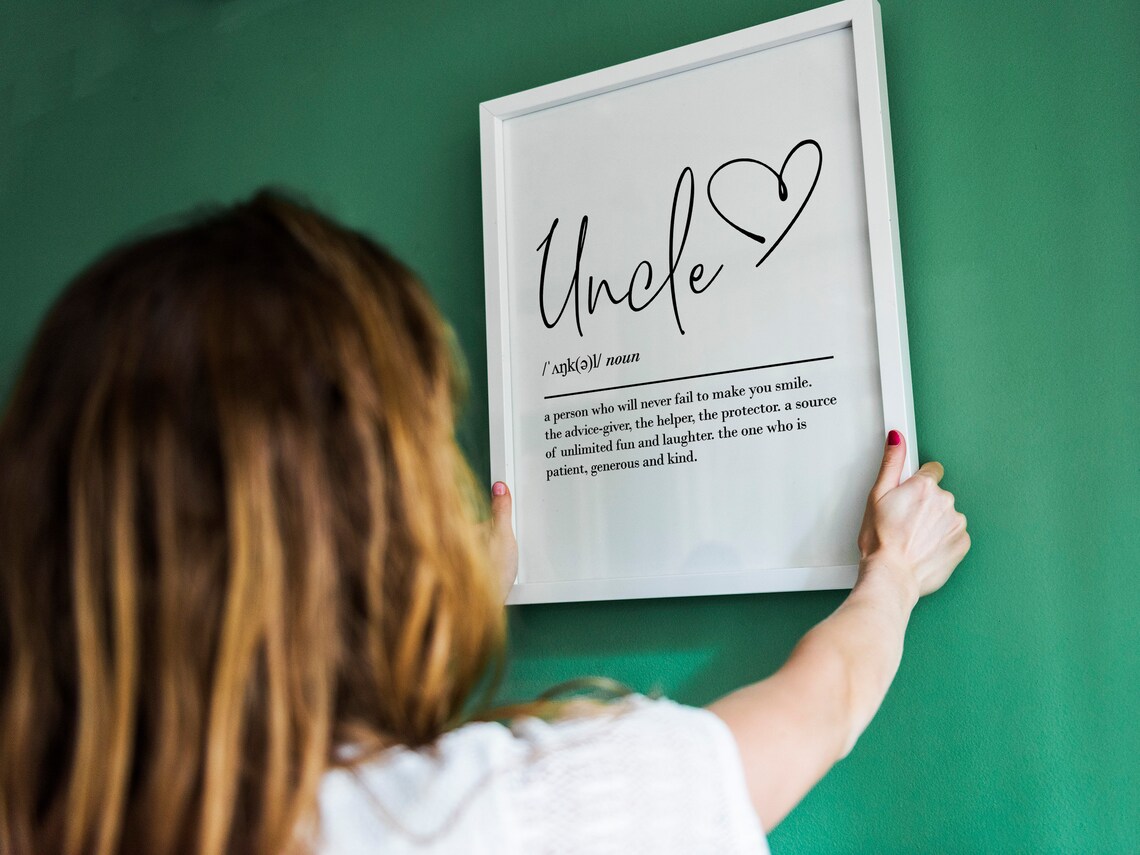 Uncle
/ˈʌŋk(ə)l/ noun
a person who will never fail to make you smile.
the advice-giver, the helper, the protector. a source
of unlimited fun and laughter. the one who is
patient, generous and kind.